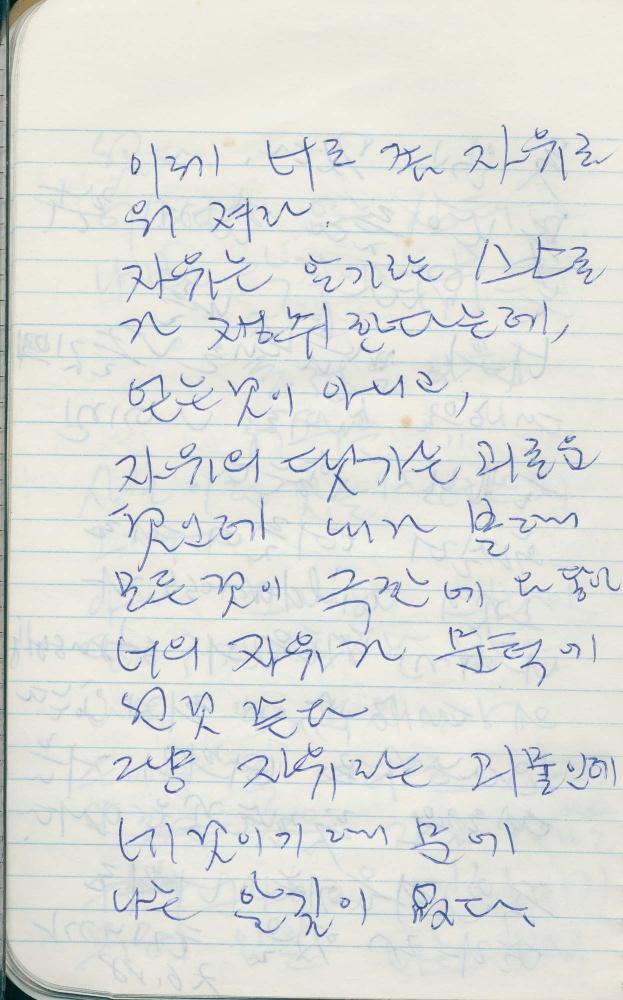 이제 너로 좀 자유로
워 져라.
자유는 용기라는
가 쟁취 한다는데,
얻는 것이 아니고,
자유의 댓가는 괴로운
것인데 내가 볼때
모든 것이 극단에
너의 자유가 문턱에
선것 같다
그냥 자유라는 괴물인데
네것이기 때문에
나는 알길이 없다.